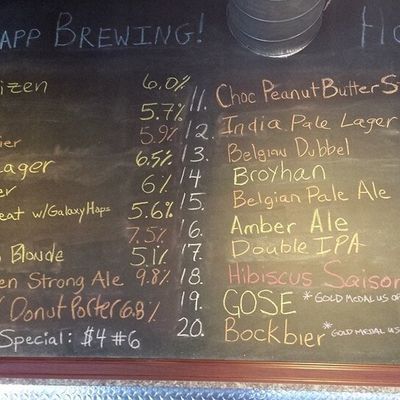 APP BREWING!
izen 6.0%
5.7%
ier 5.9%
ager 6.5%
er 6%
eat w/Galaxy Hops 5.6%
7.5%
Blonde 5.1%
en Strong Ale 9.8%
Donut Porter 6.8%
Special: $4 #6
Ho
11. Choc Peanut Butter S
12. India Pale Lager
13. Belgian Dubbel
14 Broyhan
15. Belgian Pale Ale
16. Amber Ale
17. Double IPA
18. Hibiscus Saison
19. GOSE *GOLD MEDAL US OP
20. Bockbier *GOLD MEDAL US